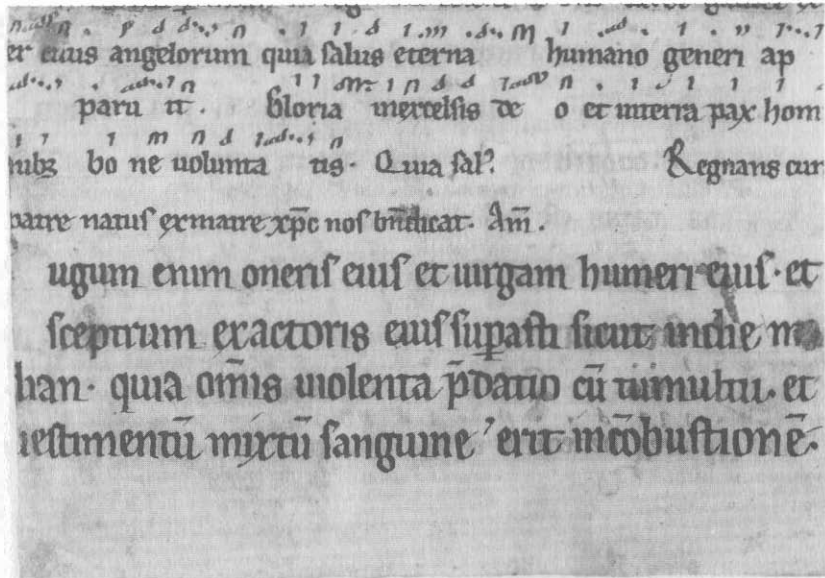 er eius angelorum quia salus eterna humano generi ap
paru it. Gloria inexcelsis de o et interra pax hom
nibꝫ bo ne uolunta tis. Quia sal?. Regnans cur
patre natus exmatre xp̄c nos bn̄dicat. Am̄.
ugum enim oneris eius et uirgam humeri eius. et
sceptrum exactoris eius suꝑasti sicut indie ma
han. quia om̄is uiolenta p̄datio cū tumultu. et
uestimentū mixtū sanguine erit incōbustionē.